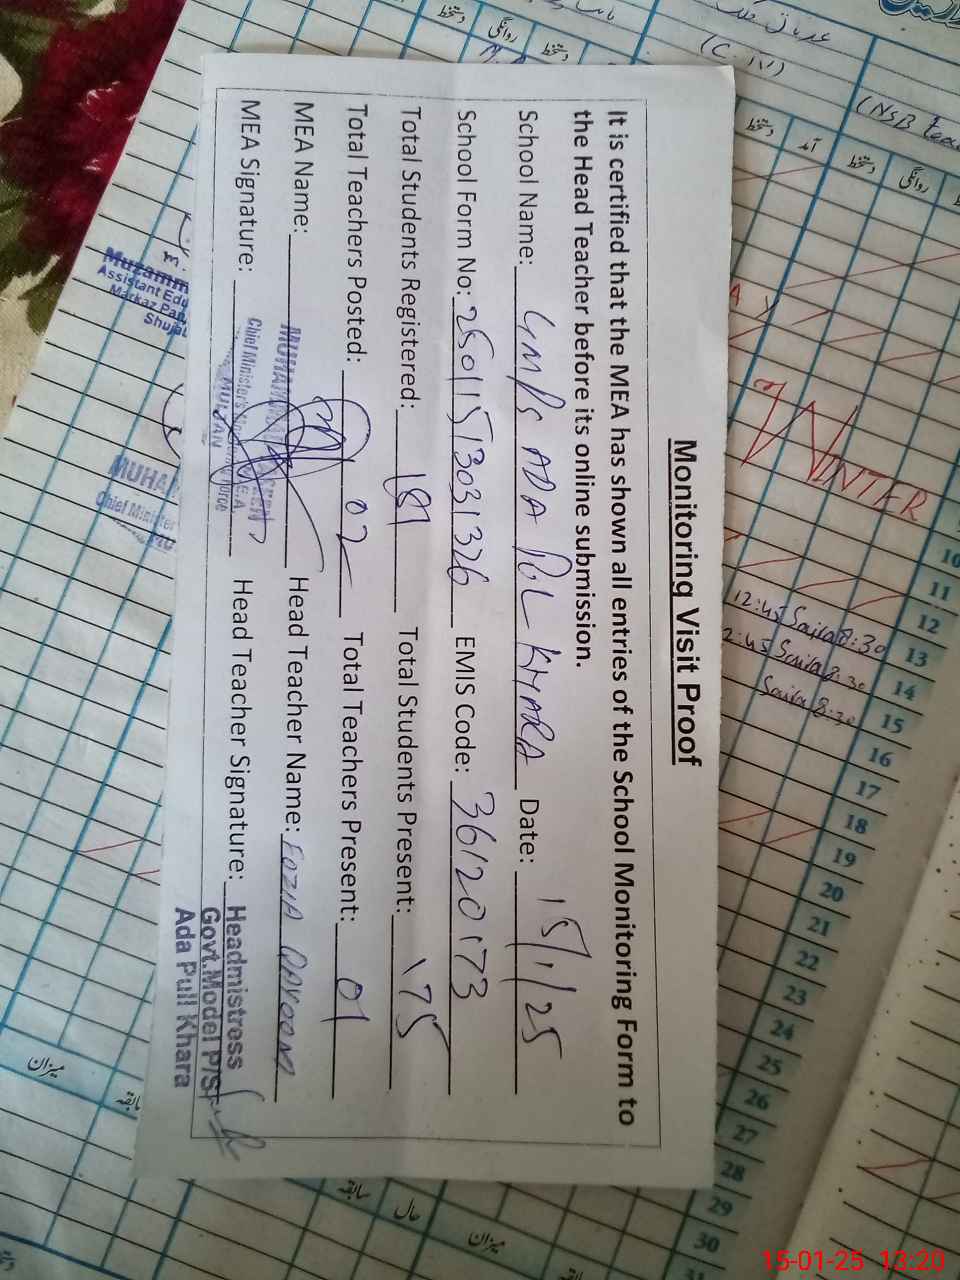 Monitoring Visit Proof
It is certified that the MEA has shown all entries of the School Monitoring Form to
the Head Teacher before its online submission.
School Name: GMPS ADA PUL KHARA Date: 15/1/25
School Form No: 25011513031326 EMIS Code: 36120173
Total Students Registered: 181 Total Students Present: 175
Total Teachers Posted: 02 Total Teachers Present: 01
MEA Name: Head Teacher Name: FOZIA QAYOOM
MEA Signature: Head Teacher Signature:
Headmistress
Govt.Model P/S
Ada Pull Khara
Chief Minister's Monitoring Force
MULTAN
Assistant Edu
Markaz
Shuja
MUHAM
Chief Minister
WINTER
12:45 Saira 8:30
2:45 Saira 8:30
Saira 8:30
(C. IV)
(NSB
دستخط
روانگی
دستخط
دستخط
آمد
دستخط
روانگی
10
11
12
13
14
15
16
17
18
19
20
21
22
23
24
25
26
27
28
29
30
31
میزان
سابقہ
حال
میزان
سابقہ
15-01-25 13:20